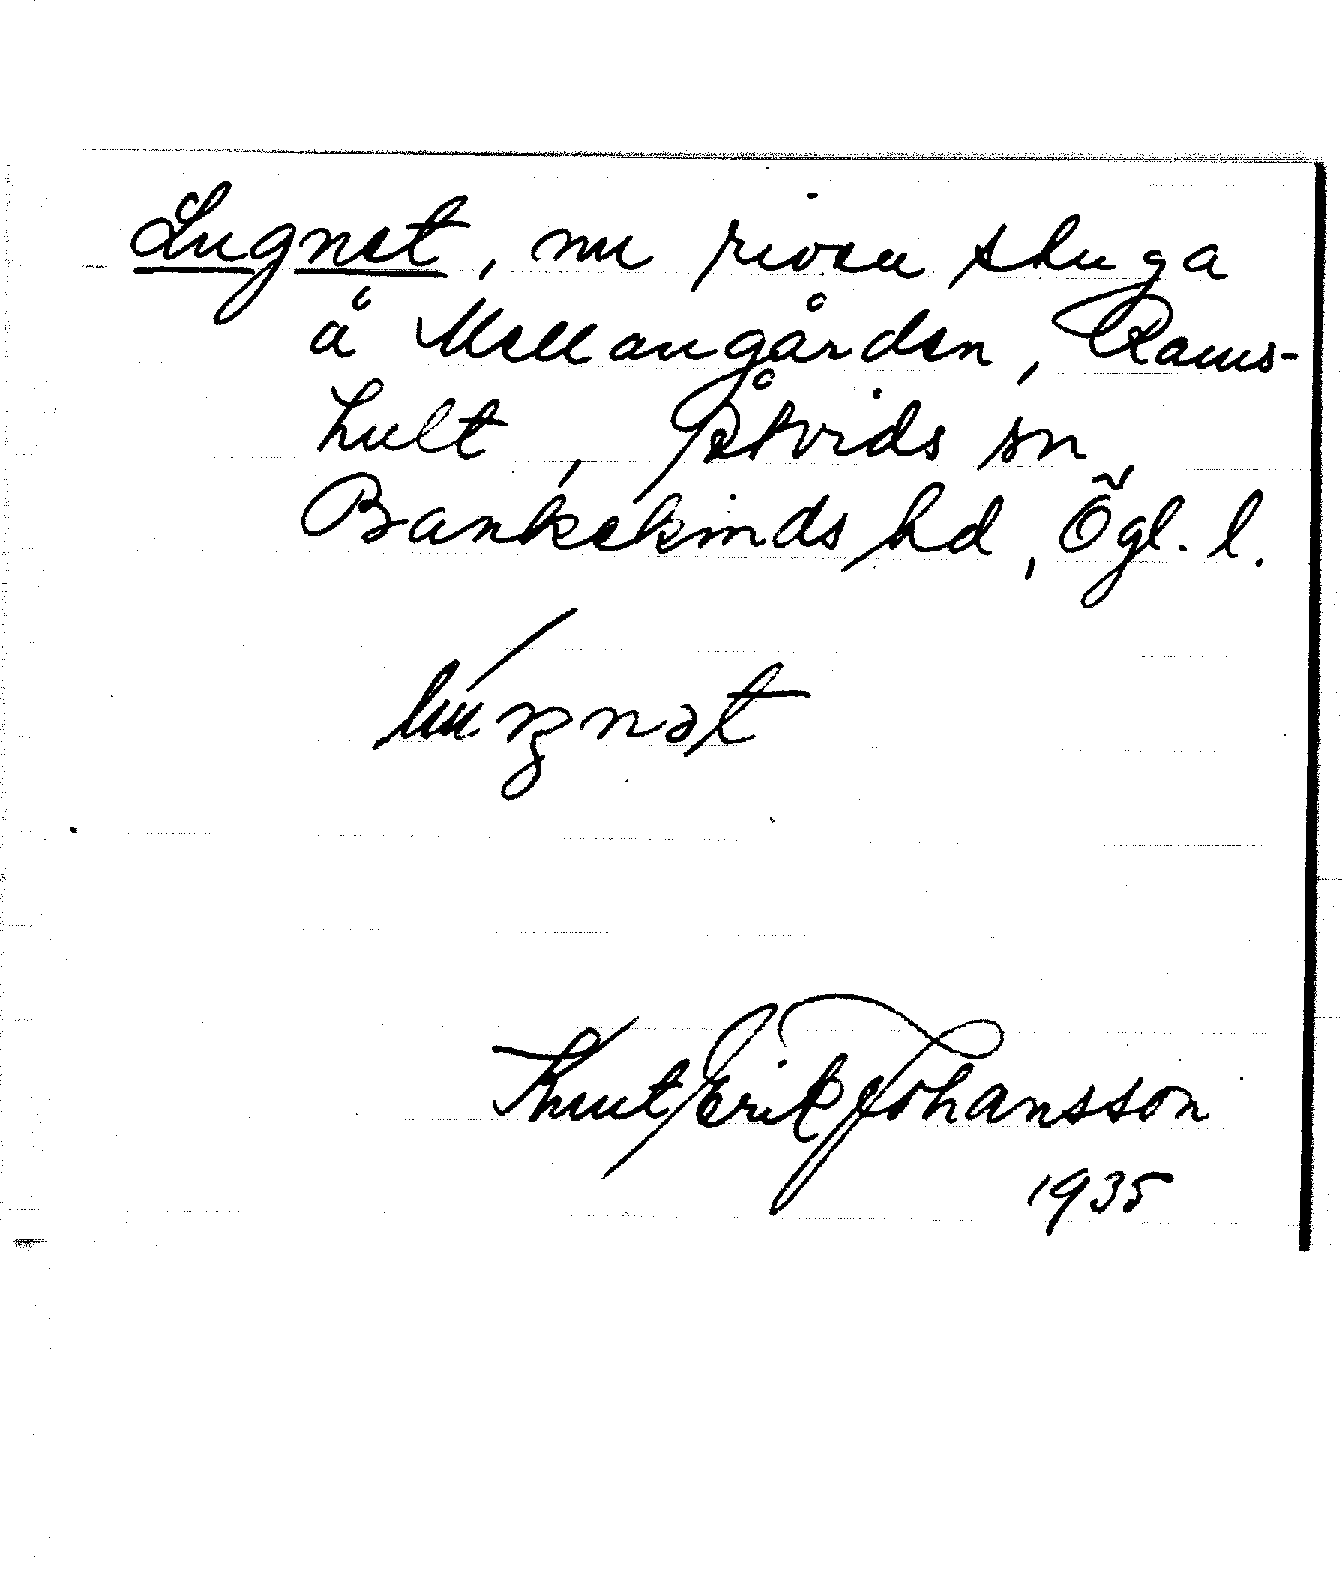 Lugnet, nu riven stuga
å Mellangården, Rams-
hult, Åtvids sn,
Bankekinds hd, Ögl. l.
Knut Erik Johansson
1935